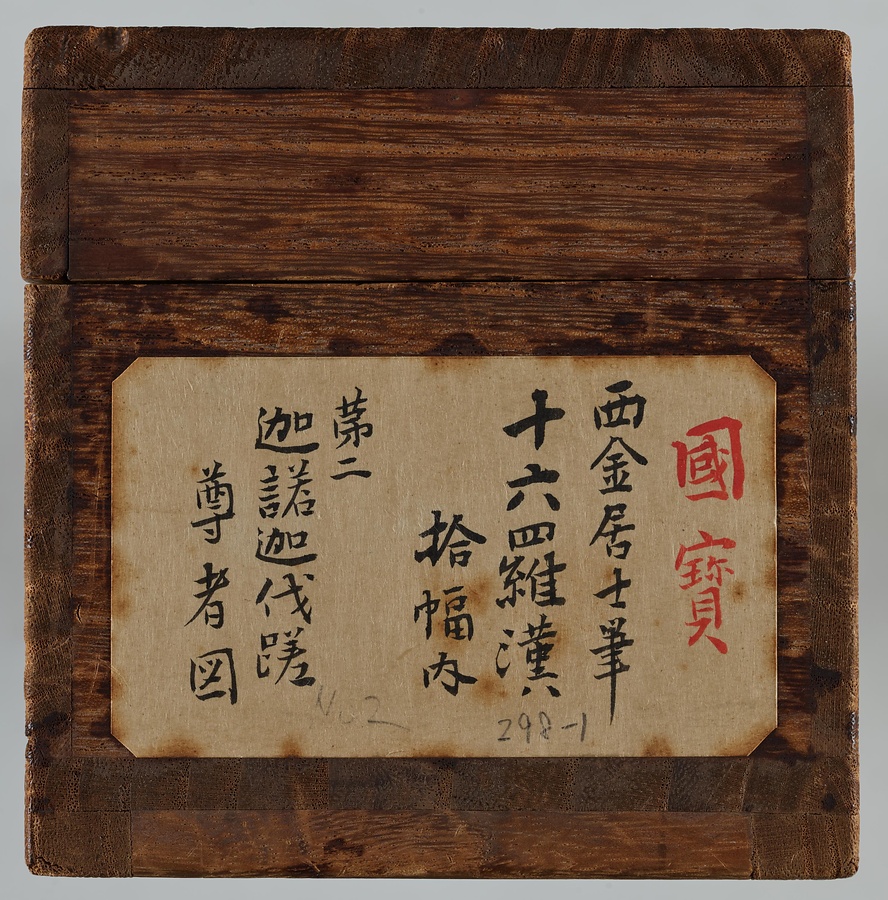 國寶
西金居士筆
十六羅漢
拾幅内
第二
迦諾迦伐蹉
尊者図
298-1
No 2